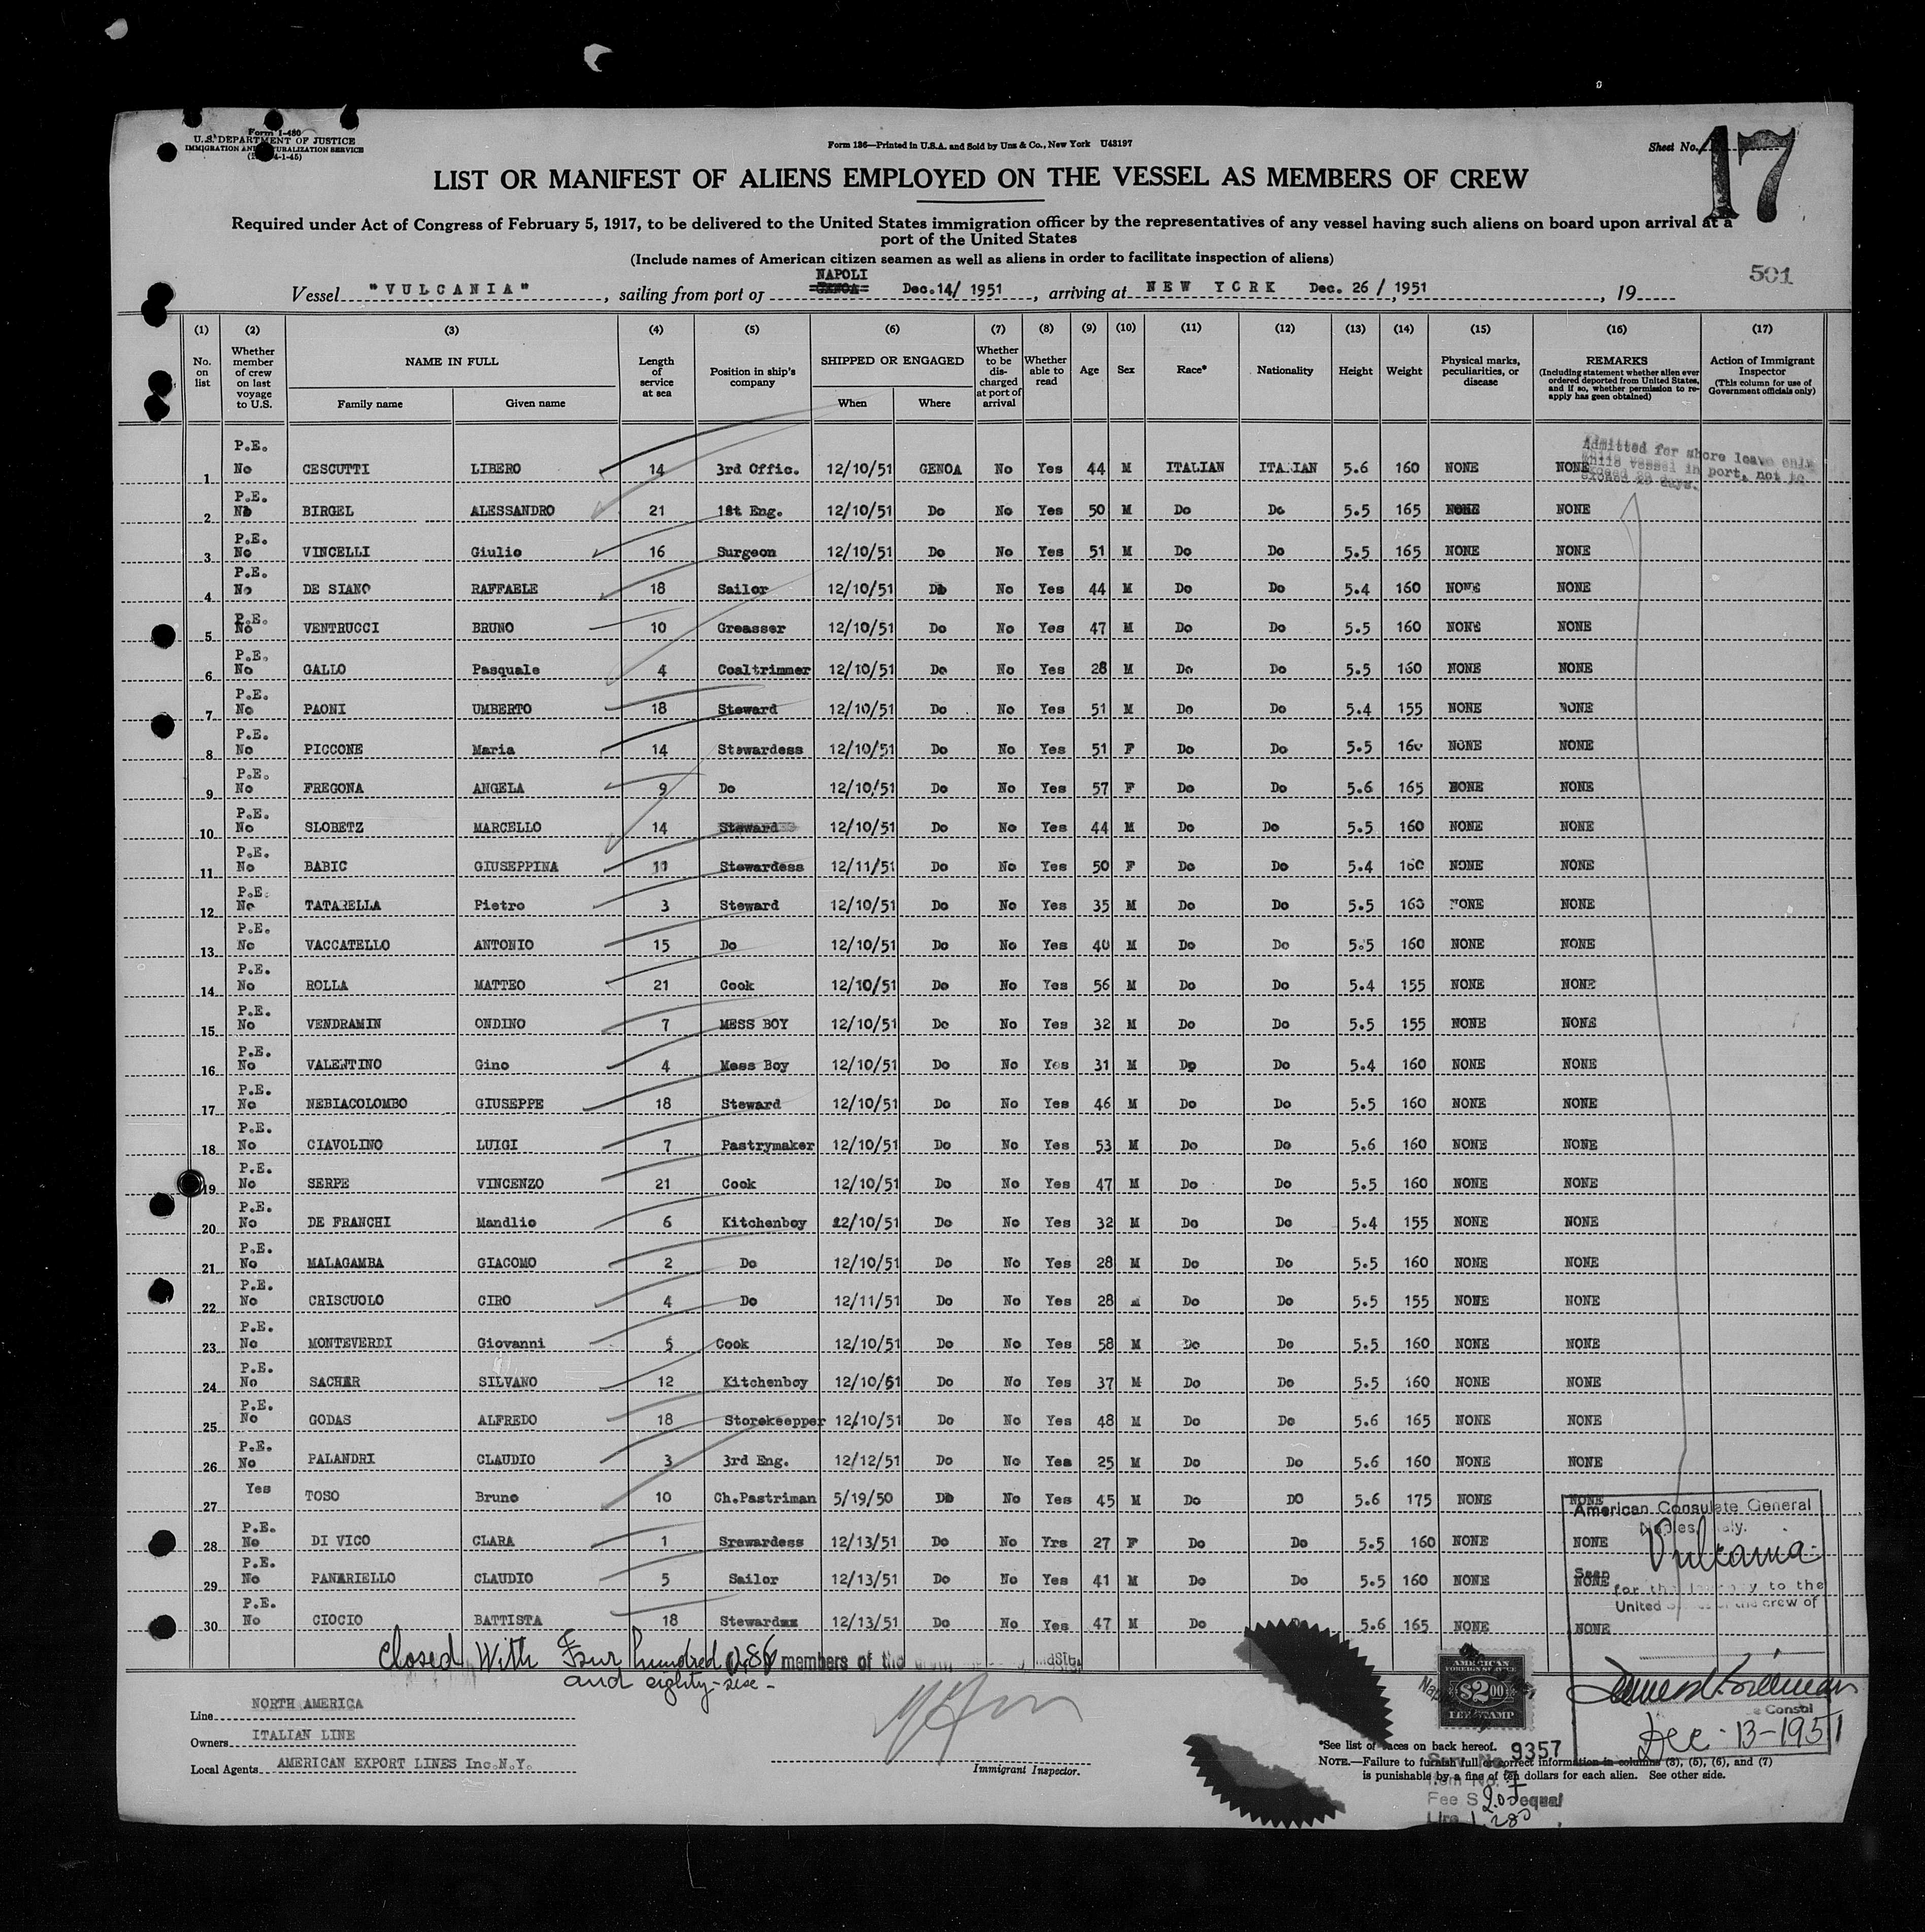 Form I-480
U.S. DEPARTMENT OF JUSTICE
IMMIGRATION AND NATURALIZATION SERVICE
4-1-45)
Form 136—Printed in U.S.A. and Sold by Unz & Co., New York U43197
Sheet No. 17
LIST OR MANIFEST OF ALIENS EMPLOYED ON THE VESSEL AS MEMBERS OF CREW
Required under Act of Congress of February 5, 1917, to be delivered to the United States immigration officer by the representatives of any vessel having such aliens on board upon arrival at a
port of the United States
(Include names of American citizen seamen as well as aliens in order to facilitate inspection of aliens)
501
NAPOLI
Vessel "VULCANIA", sailing from port of GENOA Dec.14/ 1951, arriving at NEW YORK Dec. 26/, 1951, 19
(1) (2) (3) (4) (5) (6) (7) (8) (9) (10) (11) (12) (13) (14) (15) (16) (17)
No. on list Whether member of crew on last voyage to U.S. NAME IN FULL Family name Given name Length of service at sea Position in ship's company SHIPPED OR ENGAGED When Where Whether to be discharged at port of arrival Whether able to read Age Sex Race* Nationality Height Weight Physical marks, peculiarities, or disease REMARKS (Including statement whether alien ever ordered deported from United States, and if so, whether permission to re-apply has geen obtained) Action of Immigrant Inspector (This column for use of Government officials only)
Admitted for shore leave only
while vessel in port, not to
exceed 29 days.
1 P.E. No CESCUTTI LIBERO 14 3rd Offic. 12/10/51 GENOA No Yes 44 M ITALIAN ITALIAN 5.6 160 NONE NONE
2 P.E. No BIRGEL ALESSANDRO 21 1st Eng. 12/10/51 Do No Yes 50 M Do Do 5.5 165 NONE NONE
3 P.E. No VINCELLI Giulio 16 Surgeon 12/10/51 Do No Yes 51 M Do Do 5.5 165 NONE NONE
4 P.E. No DE SIANO RAFFAELE 18 Sailor 12/10/51 Do No Yes 44 M Do Do 5.4 160 NONE NONE
5 P.E. No VENTRUCCI BRUNO 10 Greasser 12/10/51 Do No Yes 47 M Do Do 5.5 160 NONE NONE
6 P.E. No GALLO Pasquale 4 Coaltrimmer 12/10/51 Do No Yes 28 M Do Do 5.5 160 NONE NONE
7 P.E. No PAONI UMBERTO 18 Steward 12/10/51 Do No Yes 51 M Do Do 5.4 155 NONE NONE
8 P.E. No PICCONE Maria 14 Stewardess 12/10/51 Do No Yes 51 F Do Do 5.5 160 NONE NONE
9 P.E. No FREGONA ANGELA 9 Do 12/10/51 Do No Yes 57 F Do Do 5.6 165 NONE NONE
10 P.E. No SLOBETZ MARCELLO 14 Steward 12/10/51 Do No Yes 44 M Do Do 5.5 160 NONE NONE
11 P.E. No BABIC GIUSEPPINA 11 Stewardess 12/11/51 Do No Yes 50 F Do Do 5.4 160 NONE NONE
12 P.E. No TATARELLA Pietro 3 Steward 12/10/51 Do No Yes 35 M Do Do 5.5 160 NONE NONE
13 P.E. No VACCATELLO ANTONIO 15 Do 12/10/51 Do No Yes 40 M Do Do 5.5 160 NONE NONE
14 P.E. No ROLLA MATTEO 21 Cook 12/10/51 Do No Yes 56 M Do Do 5.4 155 NONE NONE
15 P.E. No VENDRAMIN ONDINO 7 MESS BOY 12/10/51 Do No Yes 32 M Do Do 5.5 155 NONE NONE
16 P.E. No VALENTINO Gino 4 Mess Boy 12/10/51 Do No Yes 31 M Do Do 5.4 160 NONE NONE
17 P.E. No NEBIACOLOMBO GIUSEPPE 18 Steward 12/10/51 Do No Yes 46 M Do Do 5.5 160 NONE NONE
18 P.E. No CIAVOLINO LUIGI 7 Pastrymaker 12/10/51 Do No Yes 53 M Do Do 5.6 160 NONE NONE
19 P.E. No SERPE VINCENZO 21 Cook 12/10/51 Do No Yes 47 M Do Do 5.5 160 NONE NONE
20 P.E. No DE FRANCHI Mandlio 6 Kitchenboy 12/10/51 Do No Yes 32 M Do Do 5.4 155 NONE NONE
21 P.E. No MALAGAMBA GIACOMO 2 Do 12/10/51 Do No Yes 28 M Do Do 5.5 160 NONE NONE
22 P.E. No CRISCUOLO CIRO 4 Do 12/11/51 Do No Yes 28 M Do Do 5.5 155 NONE NONE
23 P.E. No MONTEVERDI Giovanni 5 Cook 12/10/51 Do No Yes 58 M Do Do 5.5 160 NONE NONE
24 P.E. No SACHER SILVANO 12 Kitchenboy 12/10/51 Do No Yes 37 M Do Do 5.5 160 NONE NONE
25 P.E. No GODAS ALFREDO 18 Storekeepper 12/10/51 Do No Yes 48 M Do Do 5.6 165 NONE NONE
26 P.E. No PALANDRI CLAUDIO 3 3rd Eng. 12/12/51 Do No Yes 25 M Do Do 5.6 160 NONE NONE
27 Yes TOSO Bruno 10 Ch.Pastriman 5/19/50 Do No Yes 45 M Do DO 5.6 175 NONE NONE
28 P.E. No DI VICO CLARA 1 Srewardess 12/13/51 Do No Yrs 27 F Do Do 5.5 160 NONE NONE
29 P.E. No PANARIELLO CLAUDIO 5 Sailor 12/13/51 Do No Yes 41 M Do Do 5.5 160 NONE NONE
30 P.E. No CIOCIO BATTISTA 18 Stewardxx 12/13/51 Do No Yes 47 M Do Do 5.6 165 NONE NONE
American Consulate General
Naples, Italy.
Vulcania
Seen
for the journey to the
United States of the crew of
Closed With Four hundred 486 members of the
and eighty-six-
Consul
Dec - 13-1951
AMERICAN
FOREIGN SERVICE
$2.00
FEE STAMP
Line NORTH AMERICA
Owners ITALIAN LINE
Local Agents AMERICAN EXPORT LINES Inc.N.Y.
Immigrant Inspector.
*See list of races on back hereof.
NOTE.—Failure to furnish full or correct information in columns (3), (5), (6), and (7)
is punishable by a fine of ten dollars for each alien. See other side.
No. 9357
Item No. 7
Fee $ 2.00 equal
Lire 1.280